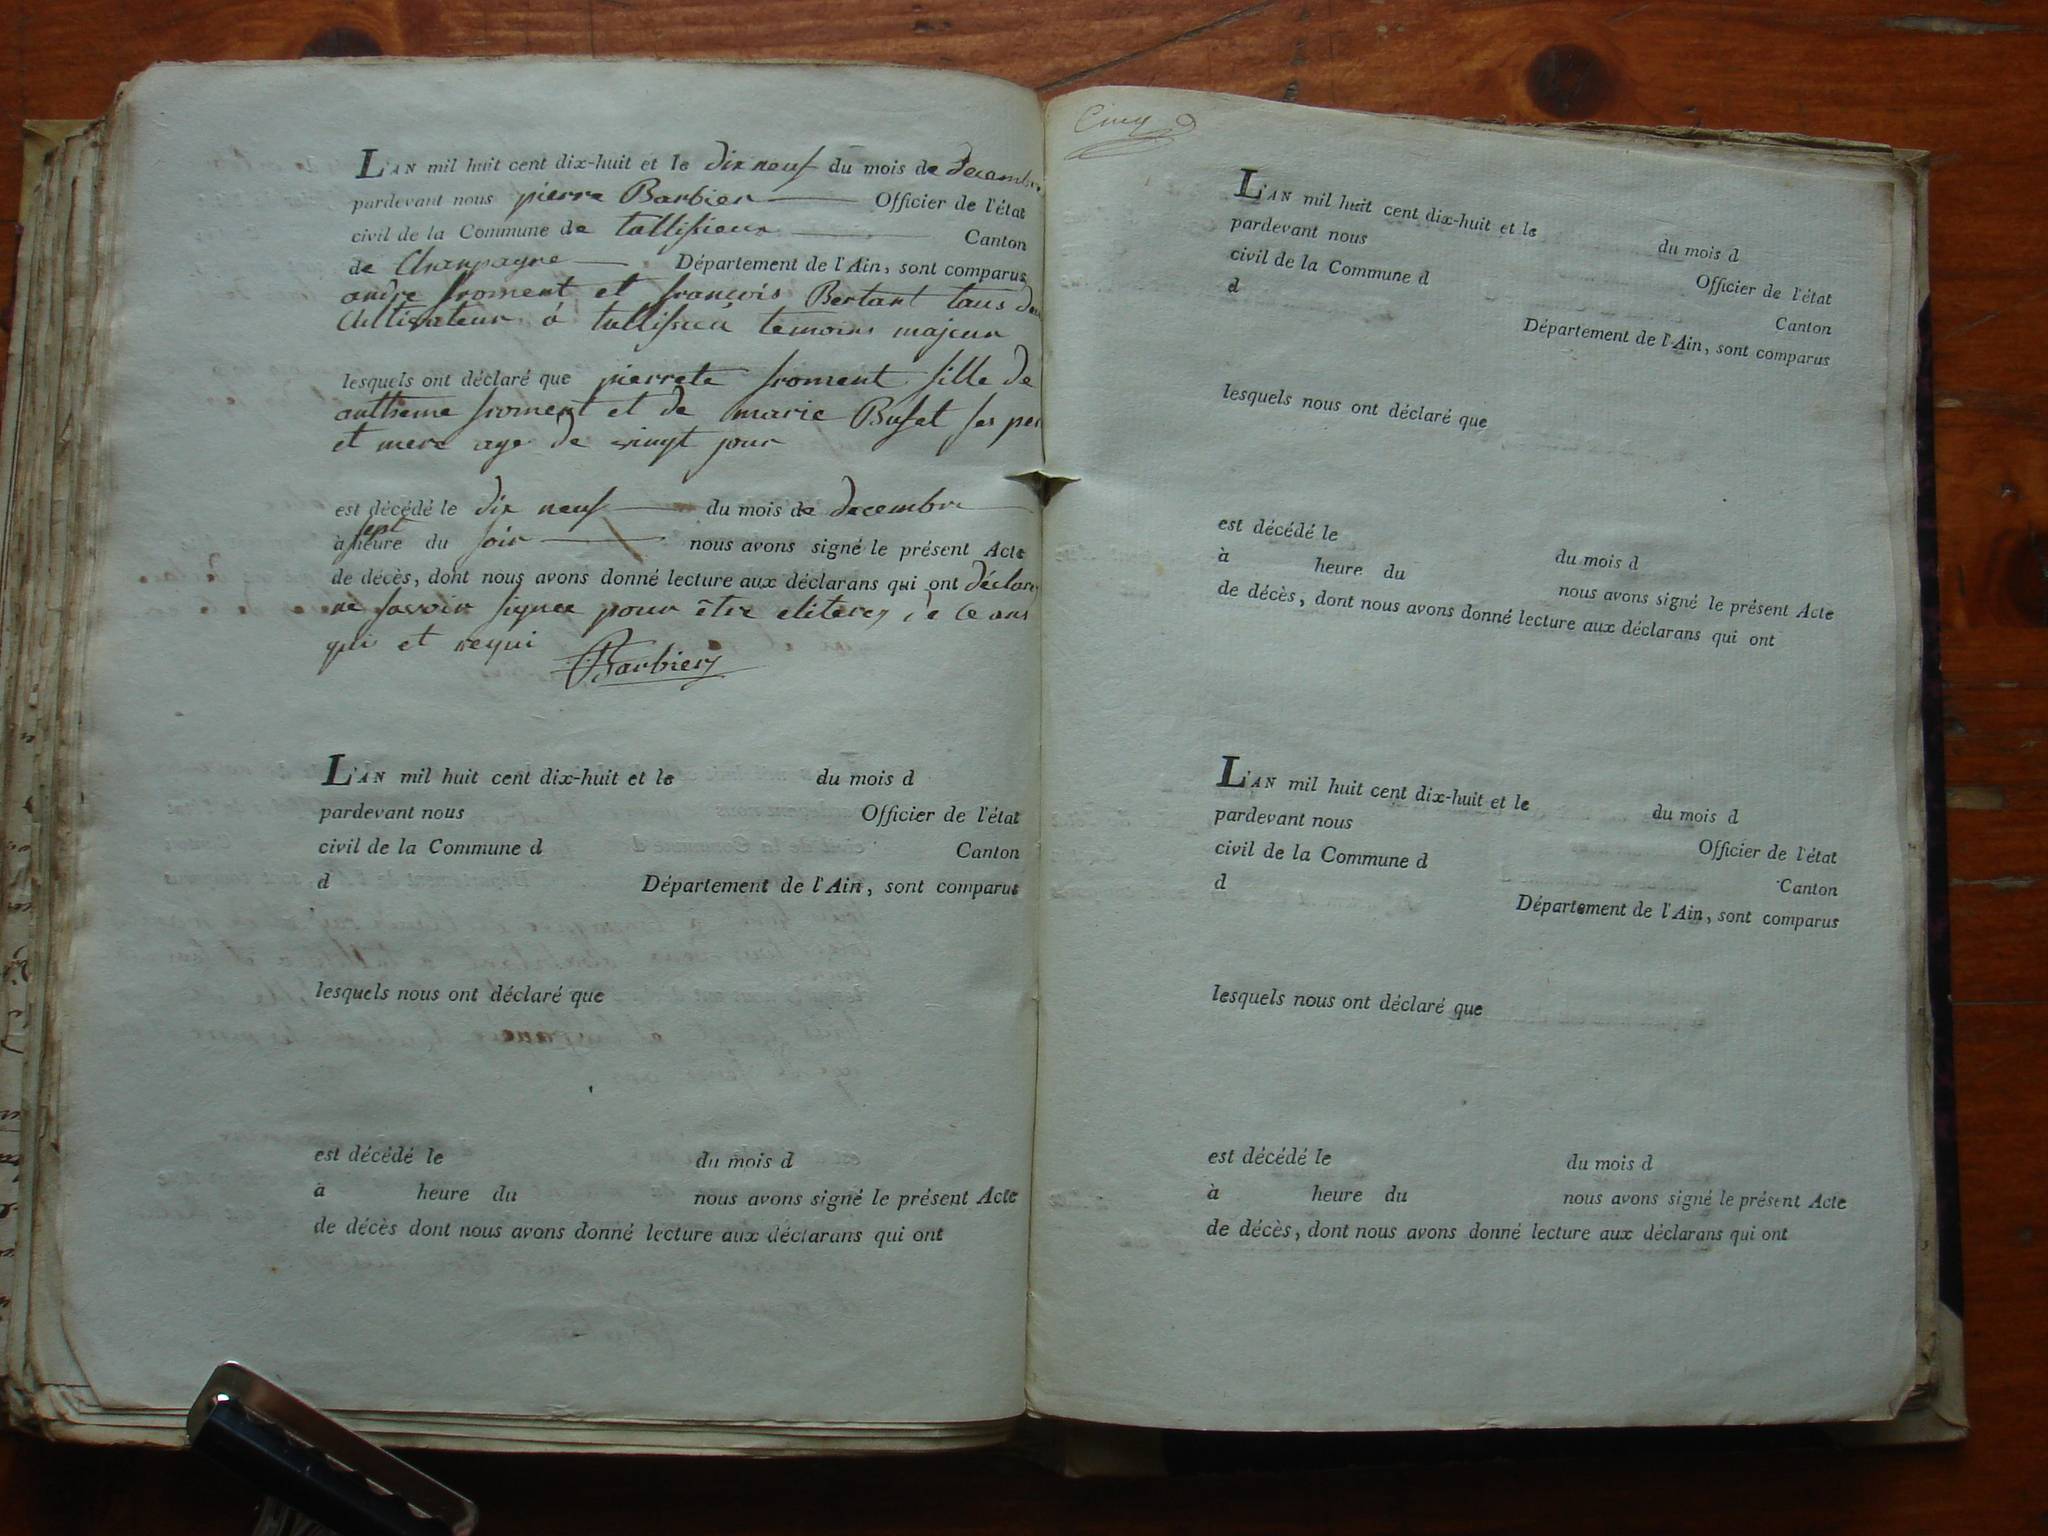 L'AN mil huit cent dix-huit et le dix neuf du mois de decembre
pardevant nous pierre Barbier Officier de l'état
civil de la Commune de tallissieux Canton
de Champagne Département de l'Ain, sont comparus
andre froment et françois Bertant tous deu
Cultivateur à tallissieu temoins majeur
lesquels ont déclaré que pierrete froment fille de
antheme froment et de marie Bufet ses per
et mere age de vingt jour
est décédé le dix neuf du mois de decembre
à sept heure du soir nous avons signé le présent Acte
de décès, dont nous avons donné lecture aux déclarans qui ont déclaré
ne savoir signer pour être eliterez de ce
qui et requi
Barbier
L'AN mil huit cent dix-huit et le du mois d
pardevant nous Officier de l'état
civil de la Commune d Canton
d Département de l'Ain, sont comparus
lesquels nous ont déclaré que
est décédé le du mois d
à heure du nous avons signé le présent Acte
de décès dont nous avons donné lecture aux déclarans qui ont
Cinq
L'AN mil huit cent dix-huit et le du mois d
pardevant nous Officier de l'état
civil de la Commune d Canton
d Département de l'Ain, sont comparus
lesquels nous ont déclaré que
est décédé le du mois d
à heure du nous avons signé le présent Acte
de décès, dont nous avons donné lecture aux déclarans qui ont
L'AN mil huit cent dix-huit et le du mois d
pardevant nous Officier de l'état
civil de la Commune d Canton
d Département de l'Ain, sont comparus
lesquels nous ont déclaré que
est décédé le du mois d
à heure du nous avons signé le présent Acte
de décès, dont nous avons donné lecture aux déclarans qui ont